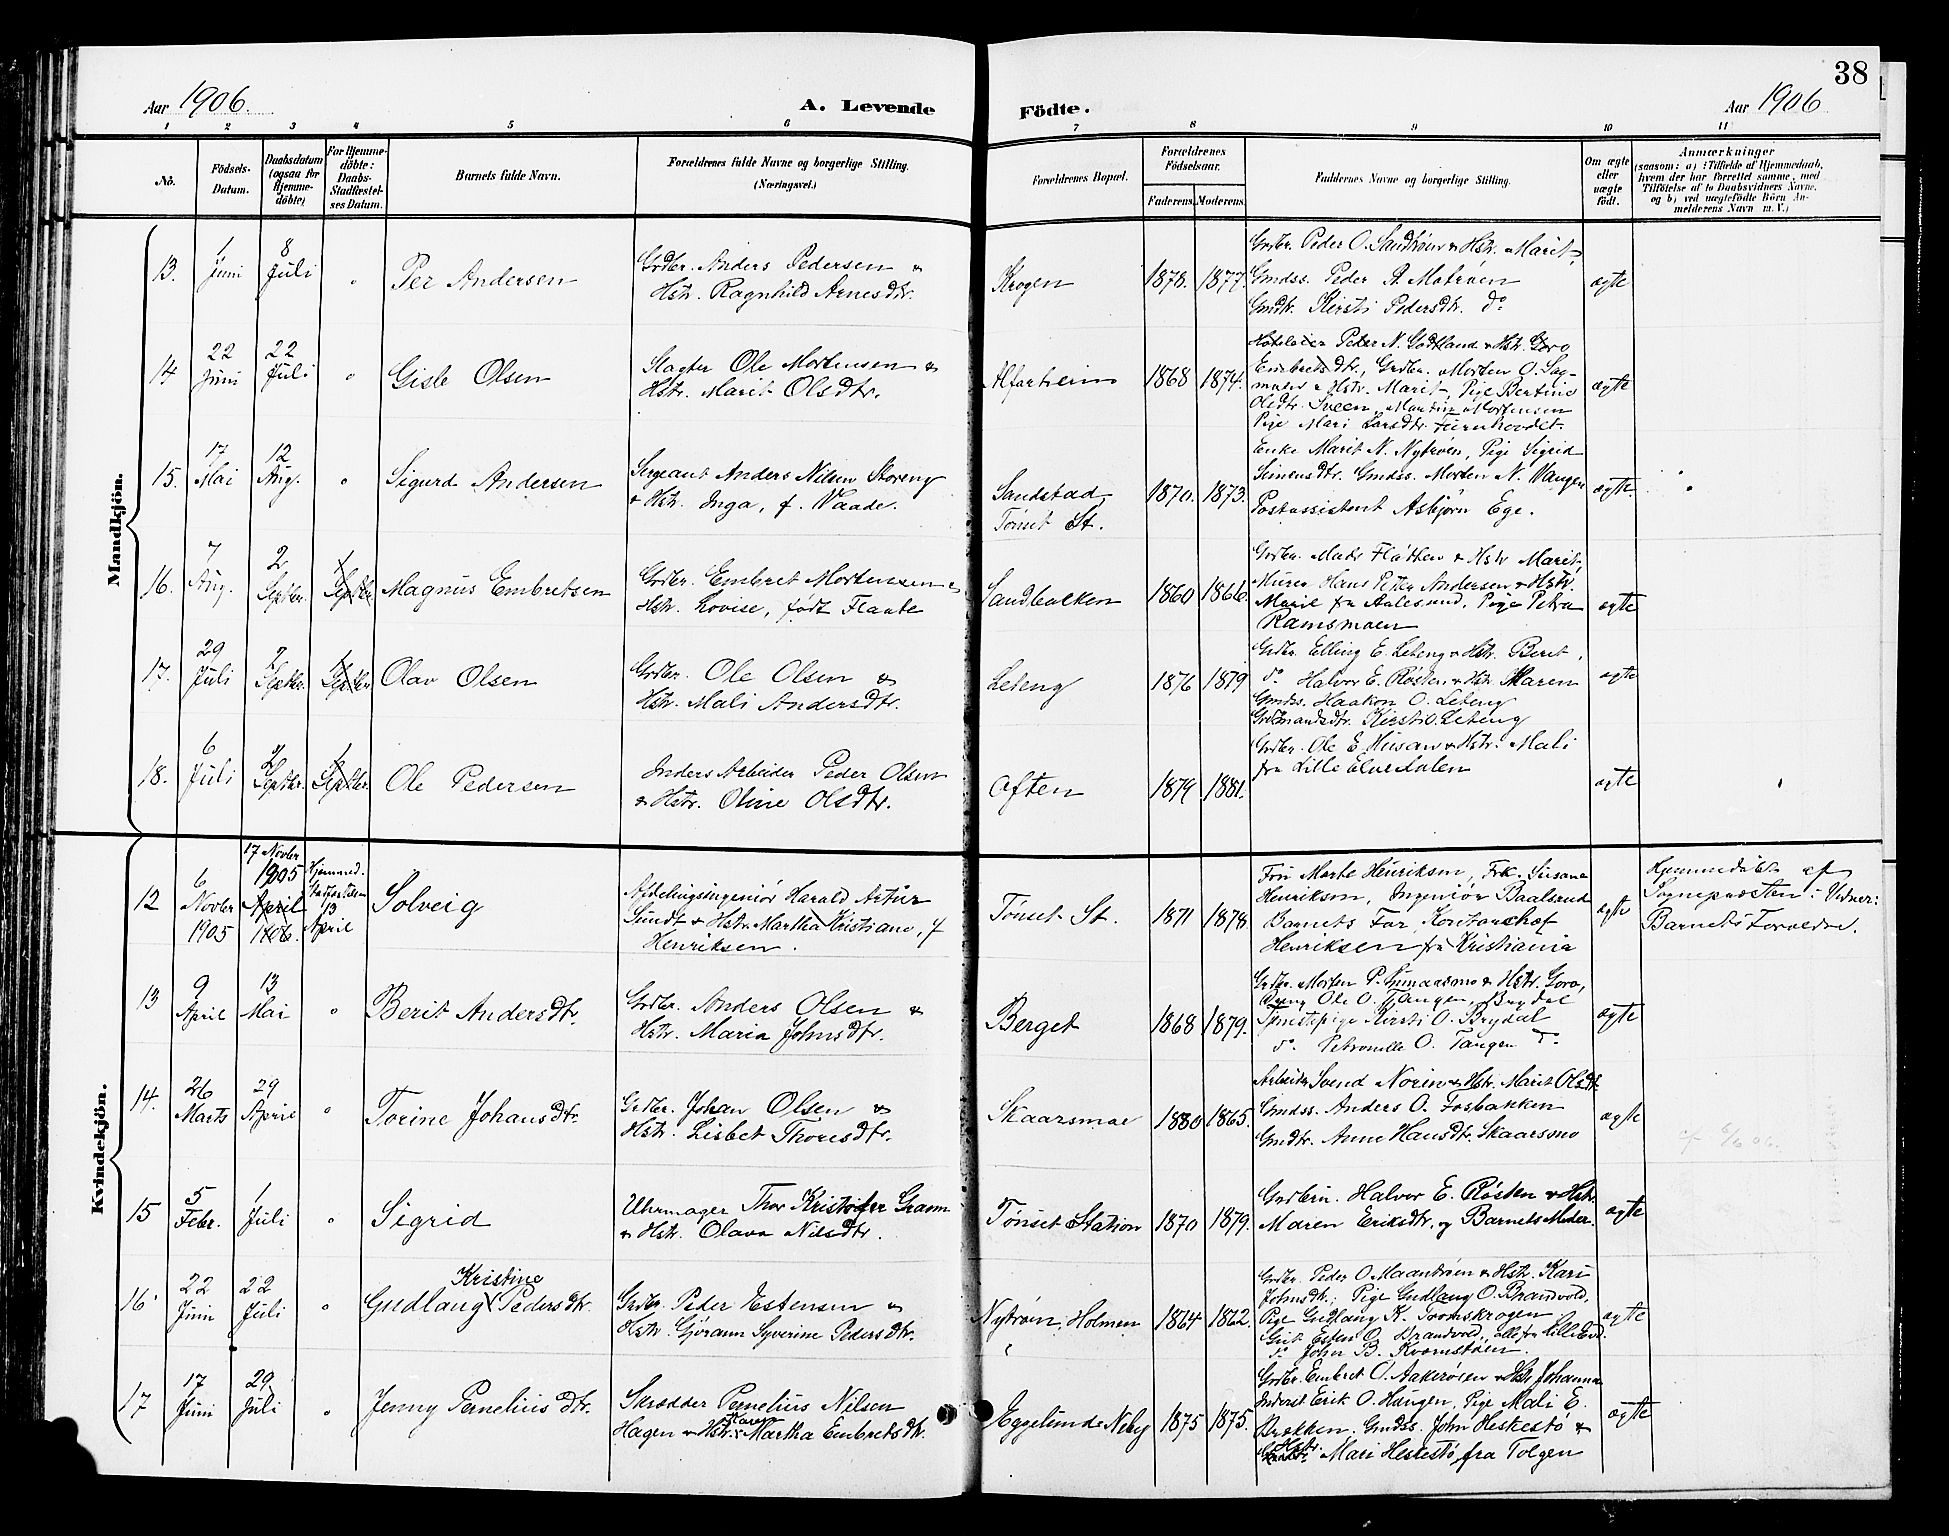 38
Aar 1906.
A. Levende
Födte.
Aar 1906
1 2 3 4 5 6 7 8 9 10 11
No.
Födsels-
Datum.
Daabsdatum
(ogsaa for
Hjemme-
döbte)
For Hjemme-
döbte:
Daabs-
Stadfæstel-
ses Datum.
Barnets fulde Navn.
Forældrenes fulde Navne og borgerlige Stilling.
(Næringsvei.)
Forældrenes Bopæl.
Forældrenes
Födselsaar.
Faderens.
Moderens.
Faddernes Navne og borgerlige Stilling.
Om ægte
eller
uægte
födt.
Anmærkninger
(saasom: a) i Tilfælde af Hjemmedaab,
hvem der har forrettet samme, med
Tilföielse af to Daabsvidners Navne,
og b) ved uægtefödte Börn An-
melderens Navn m. V.)
Mandkjön.
13.
1
Juni
8
Juli
"
Per Andersen
Grdbr. Anders Pedersen &
Hstr. Ragnhild Arnesdtr.
Krogen
1878.
1877.
Grdbr. Peder O. Sandtrøen & Hstr. Marit,
Gmdss. Peder A. Motrøen
Gmdtr. Kirsti Pedersdtr. do
ægte
14
22
Juni
22
Juli
"
Gisle Olsen
Slagter Ole Mortensen &
Hstr. Marit Olsdtr.
Alfarheim
1868
1874.
Hoteleier Peder N. Godtland & Hstr. Goro
Embretsdtr., Grdbr. Morten O. Sag-
moen & Hstr. Marit, Pige Bertine
Olsdtr. Sveen, Martin Mortensen
Pige Mari Larsdtr. Furuhovdet.
ægte
15.
17
Mai
12
Aug.
"
Sigurd Andersen
Sergeant Anders Nilsen Storeng
& Hstr. Inga, f. Waade.
Sandstad
Tønset St.
1870.
1873.
Enke Marit N. Nytrøen, Pige Sigrid
Simensdtr. Gmdss. Morten N. Vangen
Postassistent Asbjørn Ege.
ægte
16.
7
Aug.
2
Septbr.
1
Septbr.
Magnus Embretsen
Grdbr. Embret Mortensen &
Hstr. Lovise, født Flaate
Sandbakken
1860
1866.
Grdbr. Mads Fløtten & Hstr Marit,
Murer Hans Peter Andersen & Hstr.
Marie fra Aalesund, Pige Petra
Ramsmoen
ægte
17.
29
Juli
2
Septbr.
1
Septbr.
Olav Olsen
Grdbr. Ole Olsen &
Hstr. Mali Andersdtr.
Leteng
1876
1879
Grdbr. Elling E. Leteng & Hstr. Beret,
do Halvor E. Røsten & Hstr. Maren
Gmdss. Haakon O. Leteng
Grdmandsdtr. Kirsti O. Leteng
ægte
18.
6
Juli
2
Septbr.
1
Septbr.
Ole Pedersen
Inders Arbeider Peder Olsen
& Hstr. Oline Olsdtr.
Aften
1879
1881.
Grdbr. Ole E. Husan & Hstr. Mali
fra Lille Elverdalen
ægte
Kvindekjön.
12
6
Novbr
1905
17 Novbr
1905
April
1906.
Hjemmed.
Stadfæstelse
13
April
Solveig
Afdelingsingeniør Harald Artur
Sundt & Hstr. Martha Kristiane, f
Henriksen.
Tønset St.
1871
1878.
Fru Marte Henriksen, Frk. Susane
Henriksen, Ingeniør Baalsrud
Barnets Far, Kontorchef
Henriksen fra Kristiania
ægte
Hjemmedøbt af
Sognepresten: Vidner:
Barnets Forældre.
13
9
April
13
Mai
"
Berit Andersdtr.
Grdbr. Anders Olsen &
Hstr. Maria Johnsdtr.
Berget
1868
1879.
Grdbr. Morten P. Gunnarsmo & Hstr. Goro,
Ung Ole O. Tangen, Brydal
Tjenestepige Kirsti O. Brydal
do. Petronille O. Tangen do.
ægte
14.
26
Marts
29
April
"
Torine Johansdtr.
Grdbr. Johan Olsen &
Hstr. Lisbet Thoresdtr.
Skaarsmoe
1880
1865.
Arbeider Svend Norin & Hstr. Marit Olsdtr
Gmdss. Anders O. Fosbakken
Gmdtr. Anne Hansdtr. Skaarsmo
ægte
15
5
Febr.
1
Juli
"
Sigrid
Uhrmager Thor Kristofer Gramm
& Hstr. Olava Nilsdtr.
Tønset Station
1870
1879.
Grdbr. Halvor E. Røsten & Hstr.
Maren Eriksdtr. og Barnets Moder.
ægte
16.
22
Juni
22
Juli
"
Kristine
Gudlaug Pedersdtr.
Grdbr. Peder Estensen &
Hstr. Gjørann Syverine Pedersdtr.
Nytrøen, Holmen
1864
1862.
Grdbr. Peder O. Maantrøen & Hstr. Kari
Johnsdtr., Pige Gudlaug O. Brandvold,
Pige Gudlaug K. Tromskrogen
Gut Esten O. Brandvold, alle fra Lille Elvd.
do John B. Kvernstøen.
ægte
17
17
Juni
29
Juli
"
Jenny Perneliusdtr.
Skrædder Pernelius Nilsen
Hagen & Hstr. Karen Martha Embretsdtr.
Eggelunde Neby
1875
1875.
Grdbr. Embret O. Aakrøsen & Hstr. Johanna
Inderst Erik O. Haugen, Pige Mali E.
Brækken. Gmdss. John Heskestø &
Hstr. Mari Heskestø, fra Tolgen
ægte